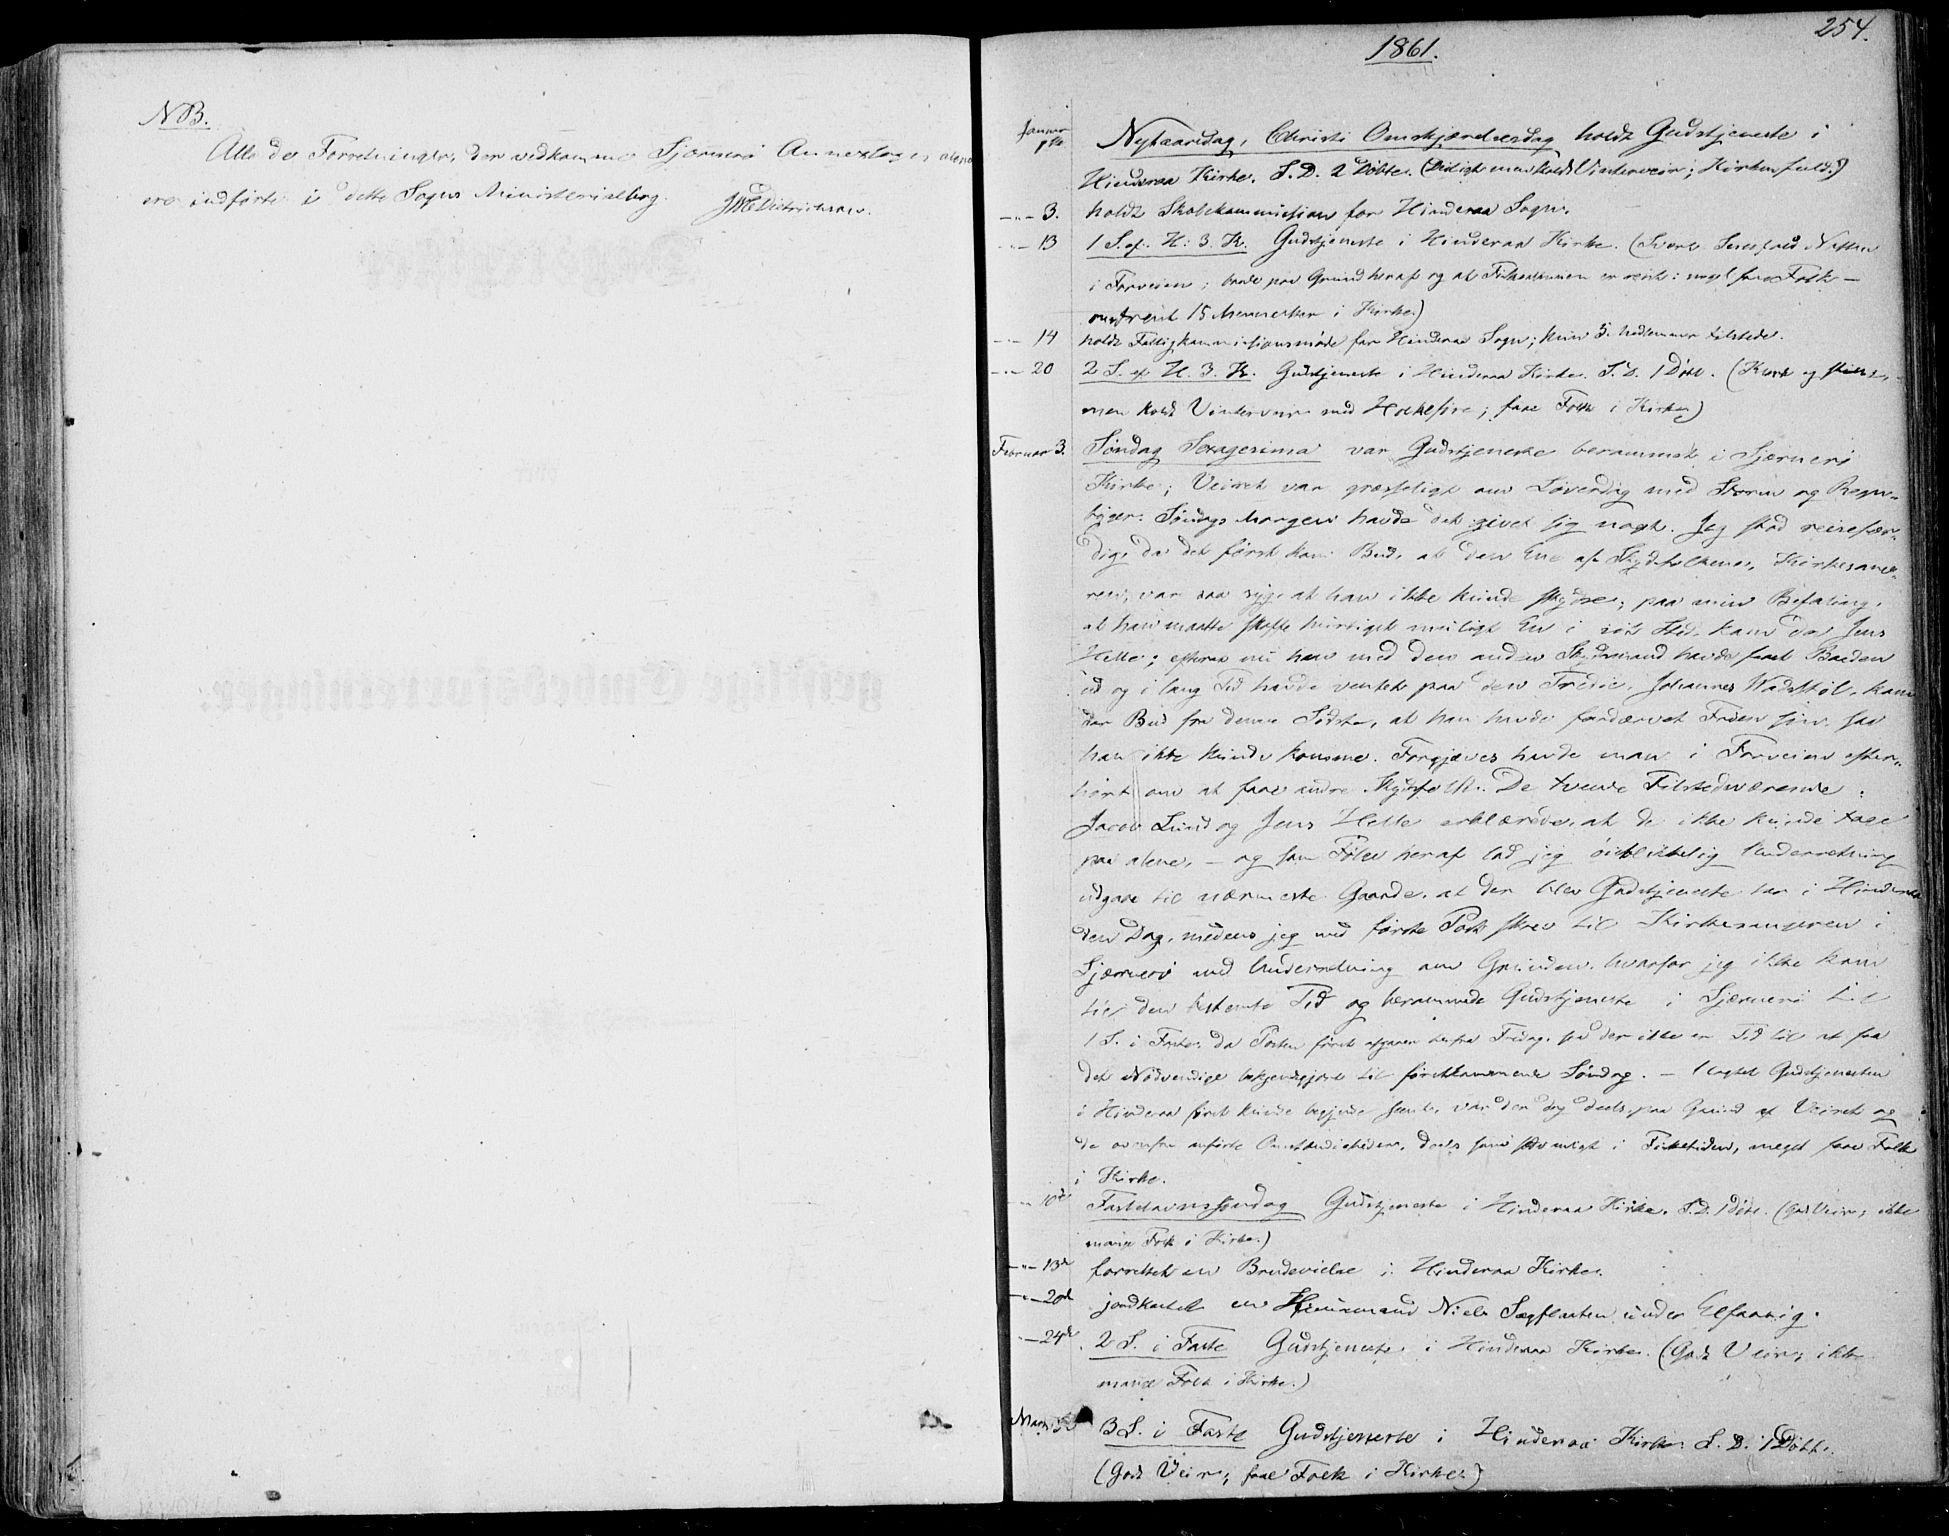 NB.
Alle de Forretninger, der vedkomme Sjærnerö Annexsogn, alene
ere indførte i dette Sogns Ministerialbog.
Dietrichson.
254.
1861.
Januar 1ste Nytaarsdag, Christi Omskjærelsesdag holdt Gudstjeneste i
Hinderaa Kirke. S. D. 2 Döbte. (Deiligt men koldt Vinterveir; Kirken fuld.)
-"- 3. holdt Skolekommission for Hinderaa Sogn.
-"- 13 1 S. ef. H. 3. K. Gudstjeneste i Hinderaa Kirke. (Natten
i Forveien; baade paa Grund heraf og at Folk
omtrent 15 Mennesker i Kirke.)
-"- 14 holdt Fattigkommissionsmöde for Hinderaa Sogn; kun 5 Medlemmer tilstede.
-"- 20 2 S. ef H. 3. K. Gudstjeneste i Hinderaa Kirke. S. D. 1 Döbt. (Klart og stille,
men koldt Vinterveir med Holkeföre; faae Folk i Kirke.)
Februar 3. Söndag Sexagesima var Gudstjeneste berammet i Sjærnerö
Kirke; Veiret var græsseligt om Löverdag med Storm og Regn-
byger. Söndags Morgen havde det givet sig noget. Jeg stod reisefær-
dig, da det först kom Bud, at den Ene af Skydsfolkene, Kirkesange-
ren, var saa syg, at han ikke kunde skydse; paa min Befaling,
at han maatte skaffe hurtigst muligt En i sit Sted, kom da Jens
Helle; efterat nu han med den anden Skydsmand havde faaet Baaden
ud og i lang Tid havde ventet paa den Tredie, Johannes Wadstöl, kom
der Bud fra denne Sidste, at han havde fordærvet Foden sin, saa
han ikke kunde komme. Forgjæves havde man i Forveien efter-
hört om at faae andre Skydsfolk. De tvende Tilstedeværende,
Jacob Lund og Jens Helle erklærede, at de ikke kunde tage
paa alene, – og som Fölge heraf lod jeg öieblikkelig Underretning
udgaae til nærmeste Gaarde, at der blev Gudstjeneste her i Hinderaa
den Dag, medens jeg med förste Post skrev til Kirkesangeren i
Sjærnerö med Underretning om Grunden, hvorfor jeg ikke kom
til den bestemte Tid og berammede Gudstjeneste i Sjærnerö til
1 S. i Faste, da Posten först afgaaer herfra Fredag, saa der ikke er Tid til at faa
det Nödvendige bekjendtgjort til förstkommende Söndag. – Uagtet Gudstjenesten
i Hinderaa först kunde begynde seent, var der dog deels paa Grund af Veiret og
de ovenfor anförte Omstændigheder, deels som sædvanligt i Fisketiden, meget faae Folk
i Kirke.
-"- 10de Fastelavnssöndag Gudstjeneste i Hinderaa Kirke. S. D. 1 Döbt. (Godt Veir; ikke
mange Folk i Kirke.)
-"- 13de forrettet en Brudevielse i Hinderaa Kirke.
-"- 20de jordkastet en Huusmand Niels under
-"- 24de 2 S. i Faste Gudstjeneste i Hinderaa Kirke. (Godt Veir; ikke
mange Folk i Kirke.)
Marts 3de 3 S. i Faste Gudstjeneste i Hinderaa Kirke. S. D. 1 Döbt.
(Godt Veir; faae Folk i Kirke.)